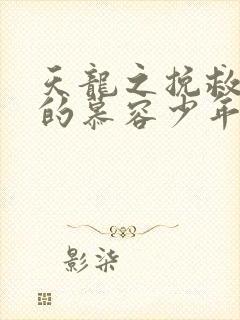 天龍之挽救
的慕容少年
影柒